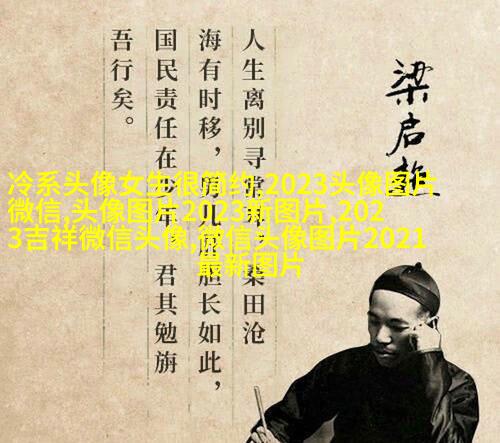 梁启超
人生离别寻常 桑田沧
海有时移,男儿肝胆长如此,
国民责任在少年 君其勉旃
吾行矣。
冷系头像女生很简约,2023头像图片
微信,头像图片2023新图片,202
3吉祥微信头像,微信头像图片2021
最新图片